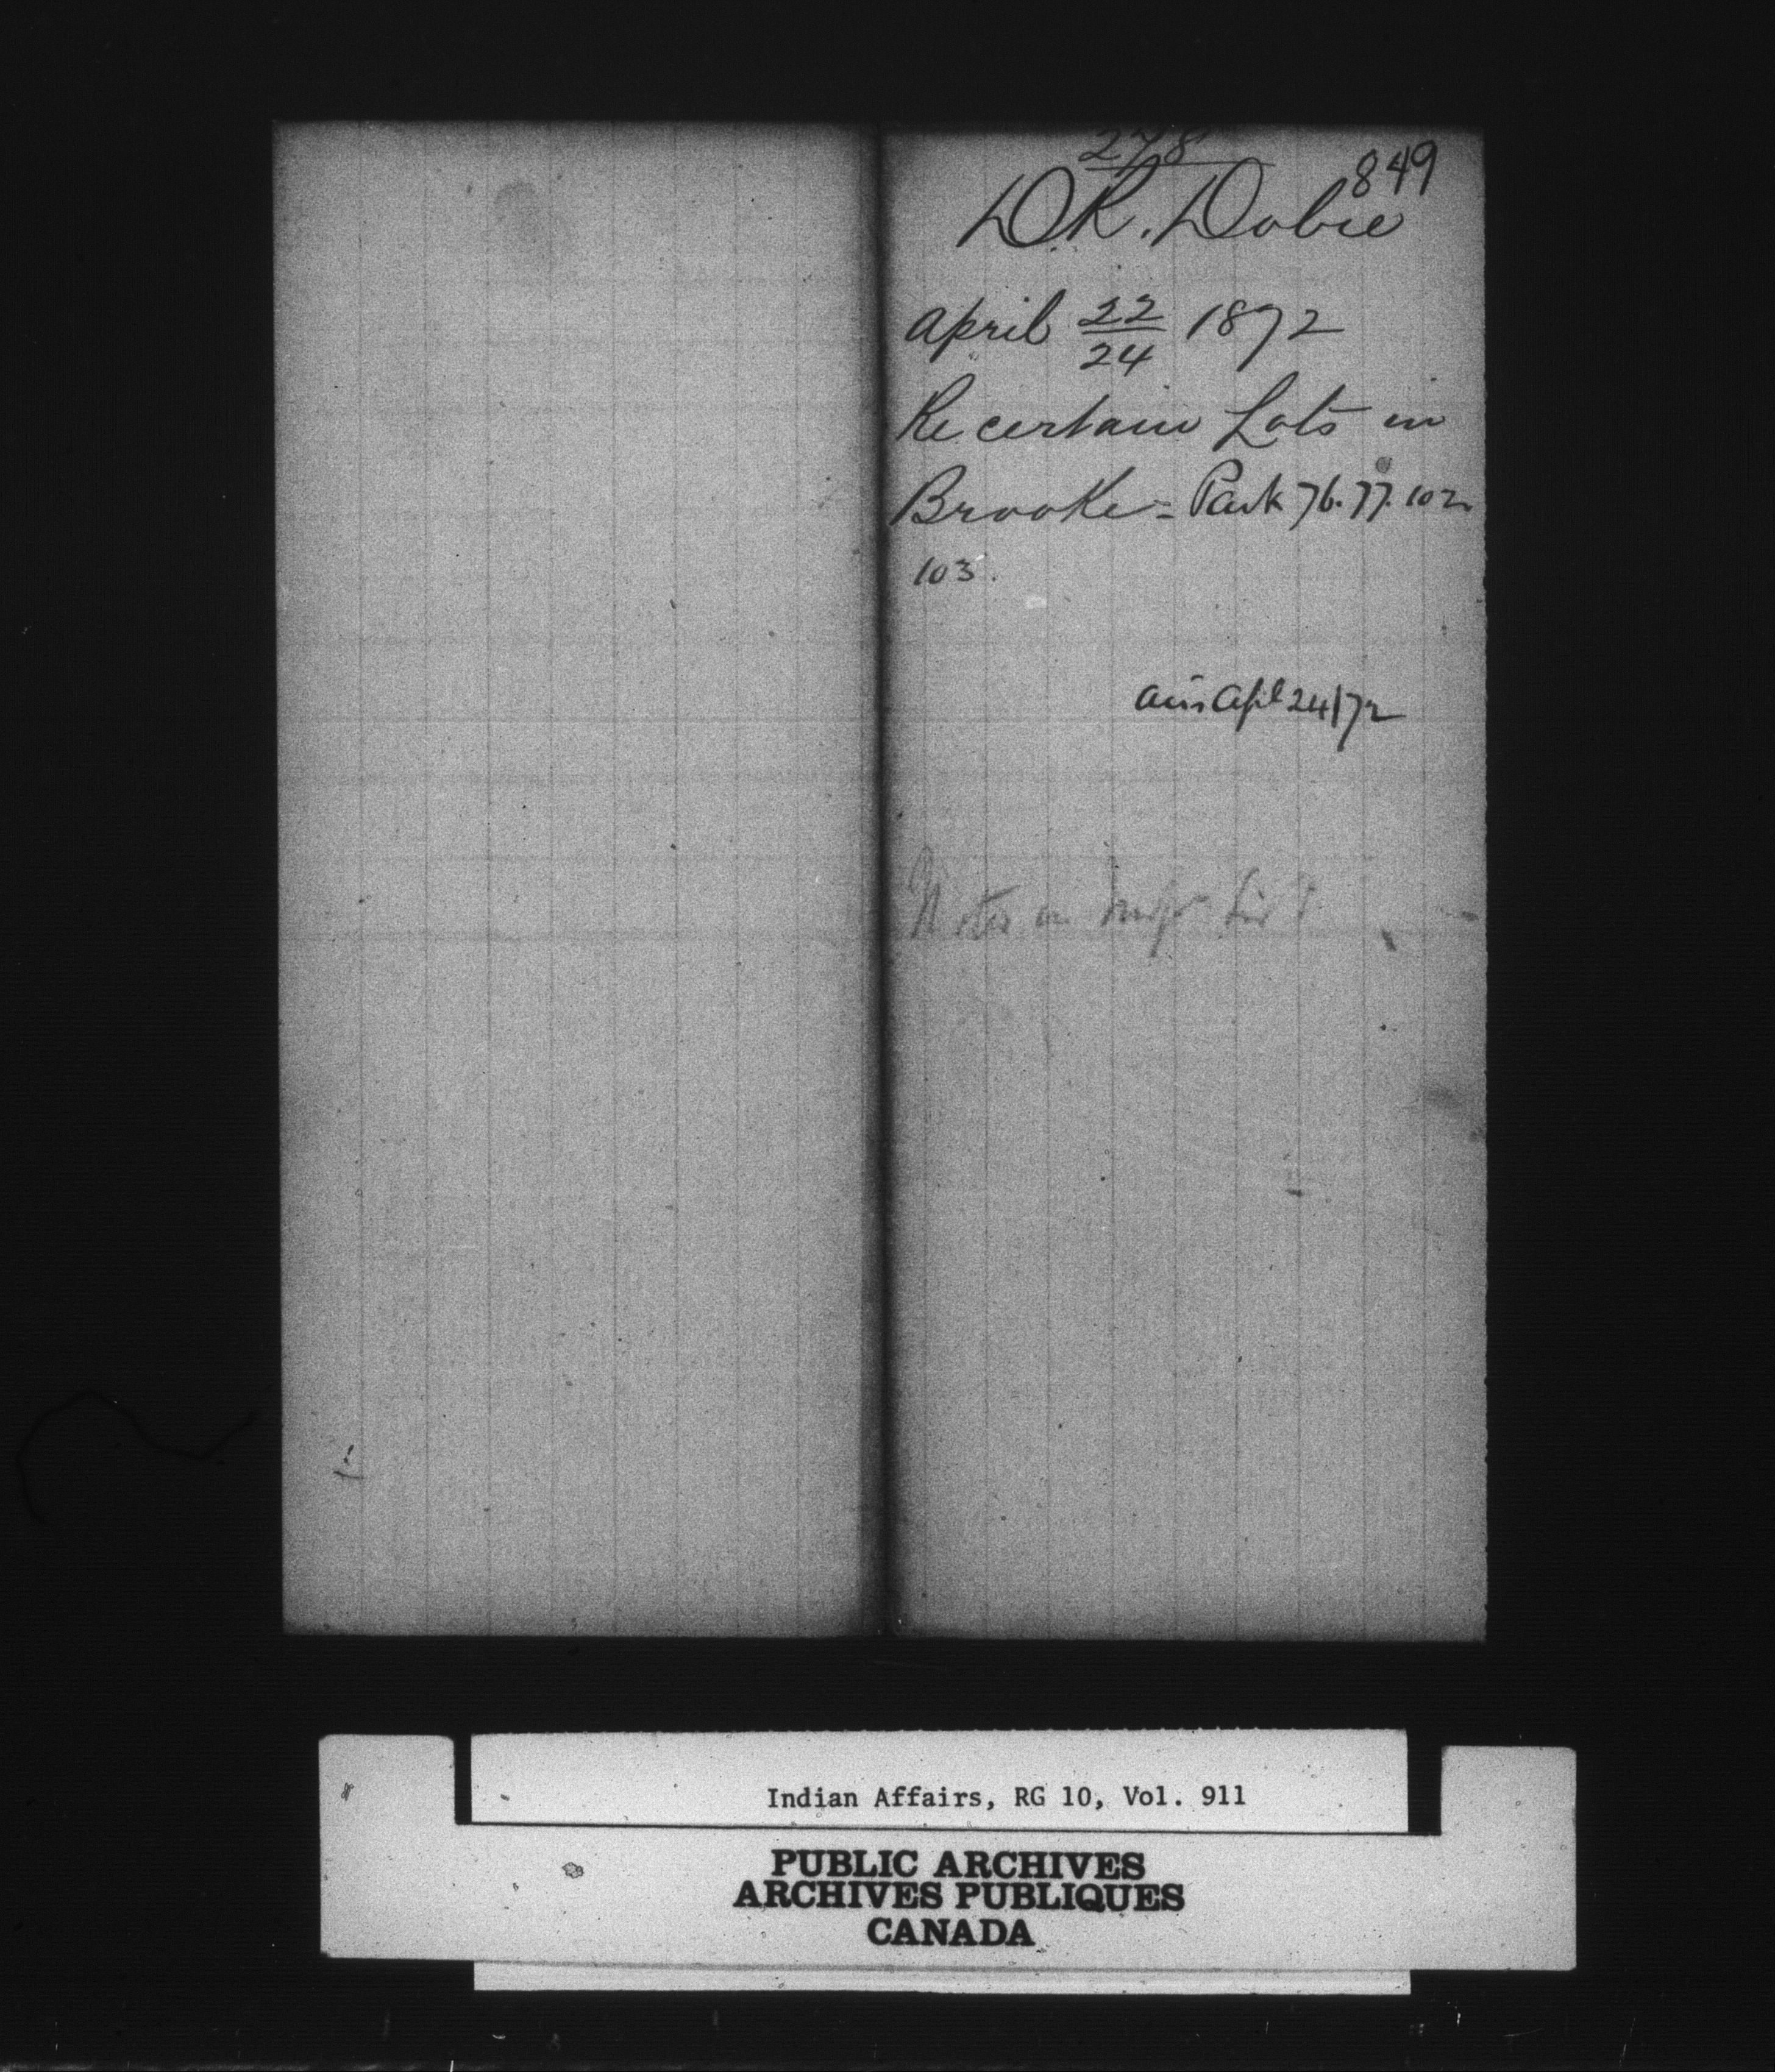 278
849
D.R. Dobie
April 22/24 1872
Re certain Lots in
Brooke = Park 76. 77. 102
103.
ans Apl 24/72
Indian Affairs, RG 10, Vol. 911
PUBLIC ARCHIVES
ARCHIVES PUBLIQUES
CANADA